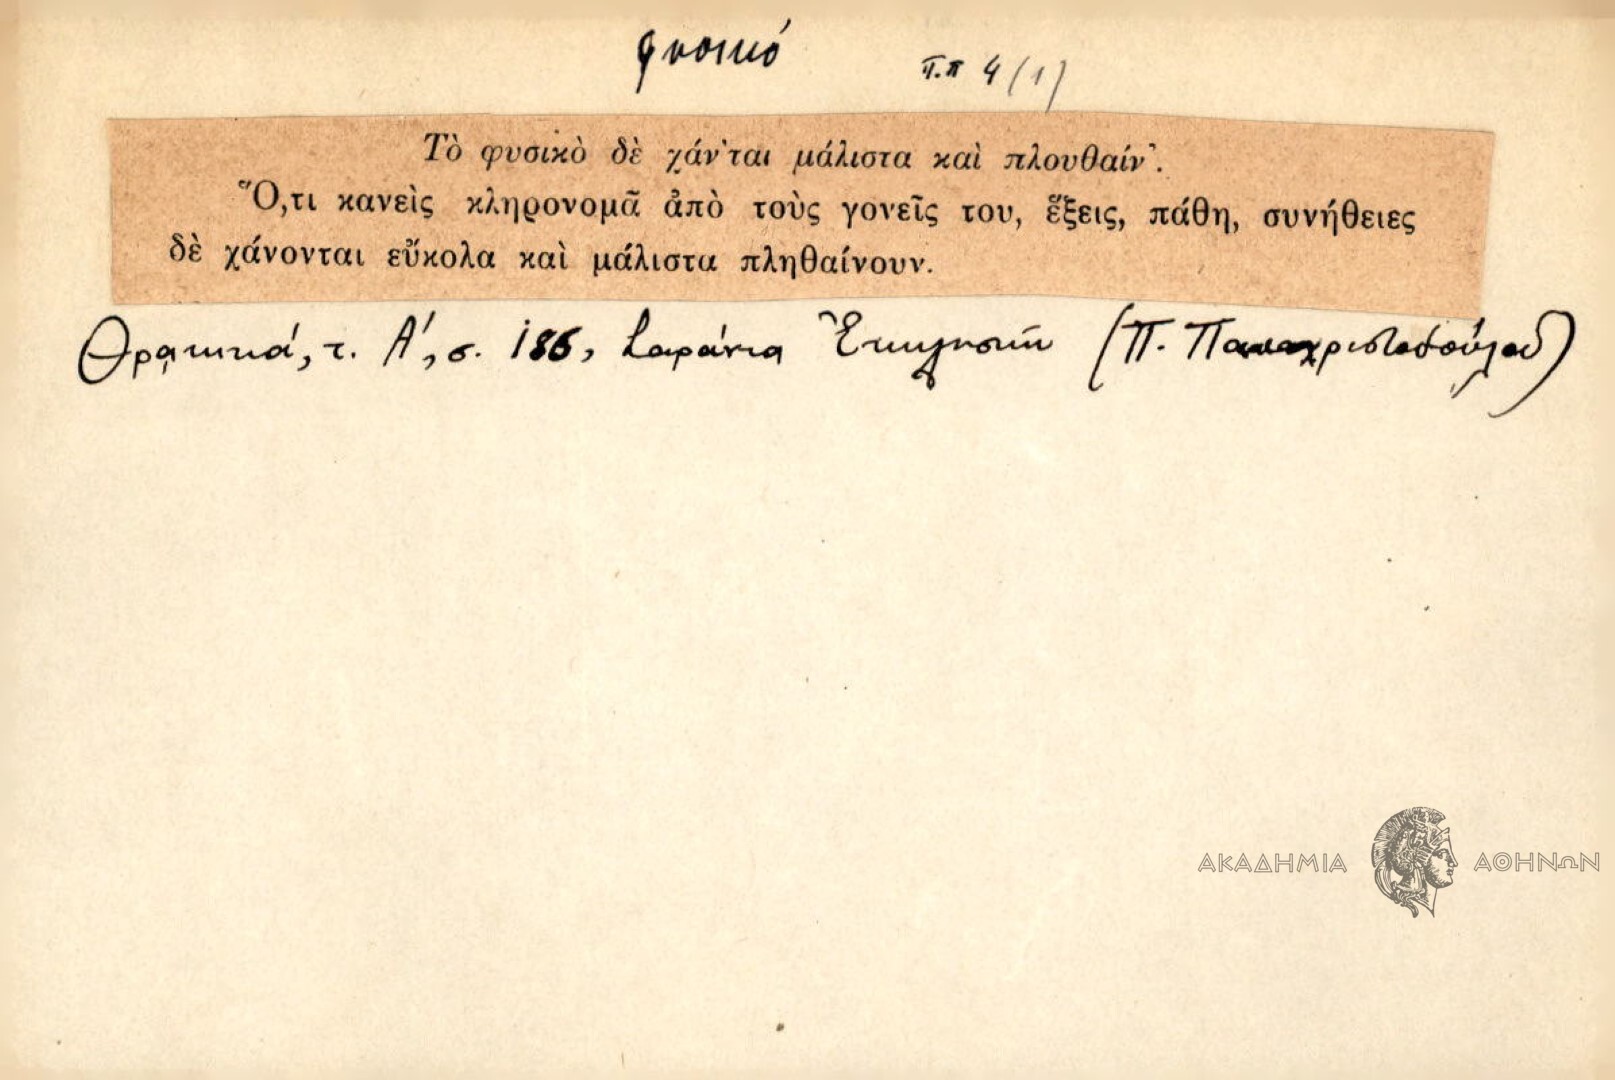 φυσικό
π.π 4 (1)
Τὸ φυσικὸ δὲ χάν'ται μάλιστα καὶ πλουθαίν'.
Ὅ,τι κανεὶς κληρονομᾶ ἀπὸ τοὺς γονεῖς του, ἕξεις, πάθη, συνήθειες
δὲ χάνονται εὔκολα καὶ μάλιστα πληθαίνουν.
Θρακικά, τ. Α', σ. 186, Σαράντα Ἐκκλησιῶν (Π. Παπαχριστοδούλου)
ΑΚΑΔΗΜΙΑ ΑΘΗΝΩΝ